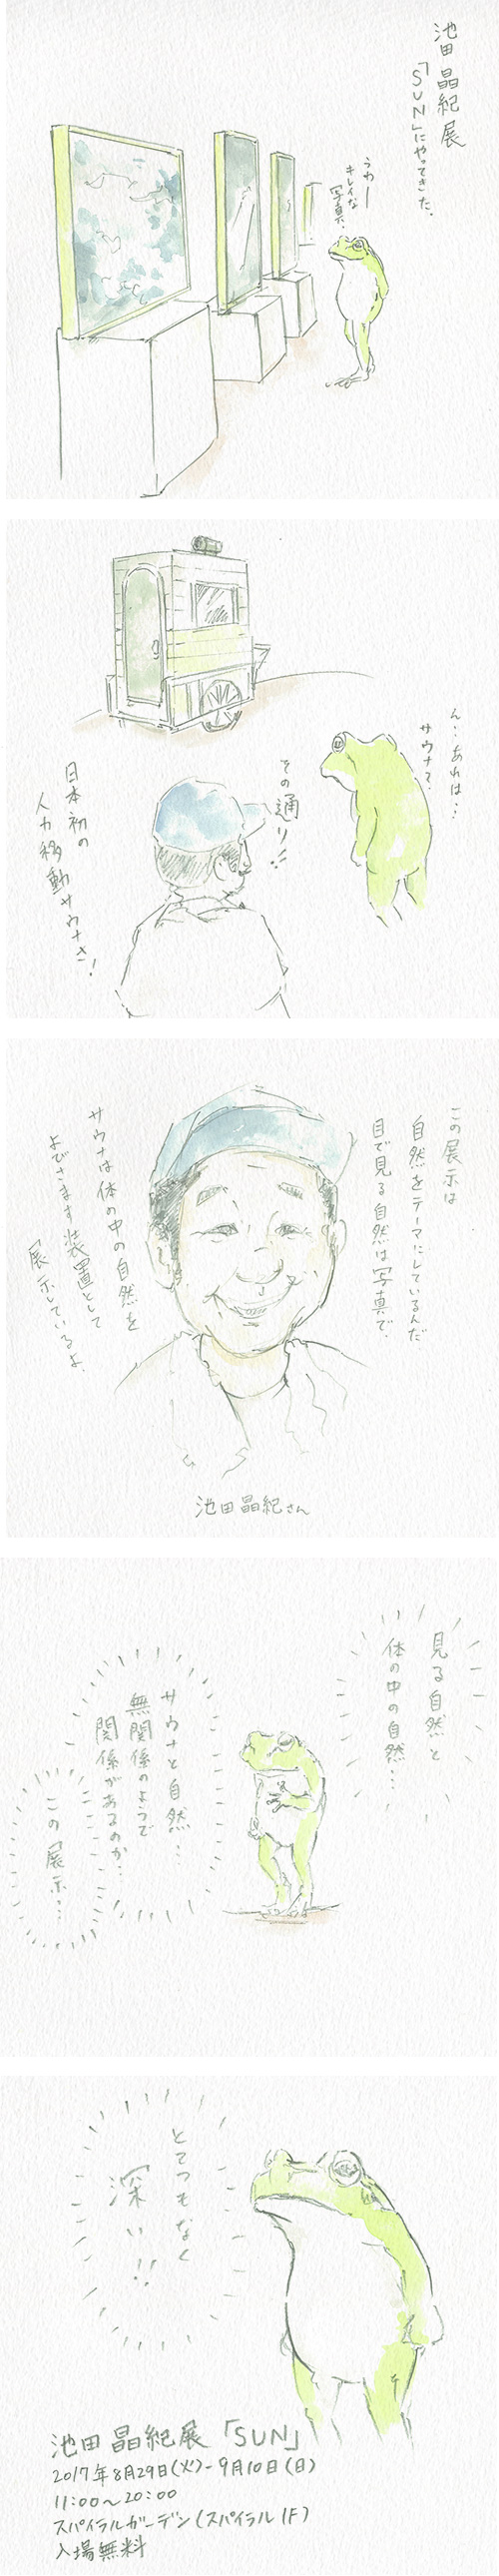 池田晶紀展
「SUN」にやってきた。
うわー
キレイな
写真。
ん…あれは…
サウナ？
その通り!!
日本初の
人力移動サウナさ！
この展示は
自然をテーマにしているんだ
目で見る自然は写真で。
サウナは体の中の自然を
よびさます装置として
展示しているよ。
池田晶紀さん
見る自然と
体の中の自然…
サウナと自然…
無関係のようで
関係があるのか…
この展示…
とてつもなく
深い!!
池田晶紀展「SUN」
2017年8月29日(火)-9月10日(日)
11:00〜20:00
スパイラルガーデン(スパイラル1F)
入場無料